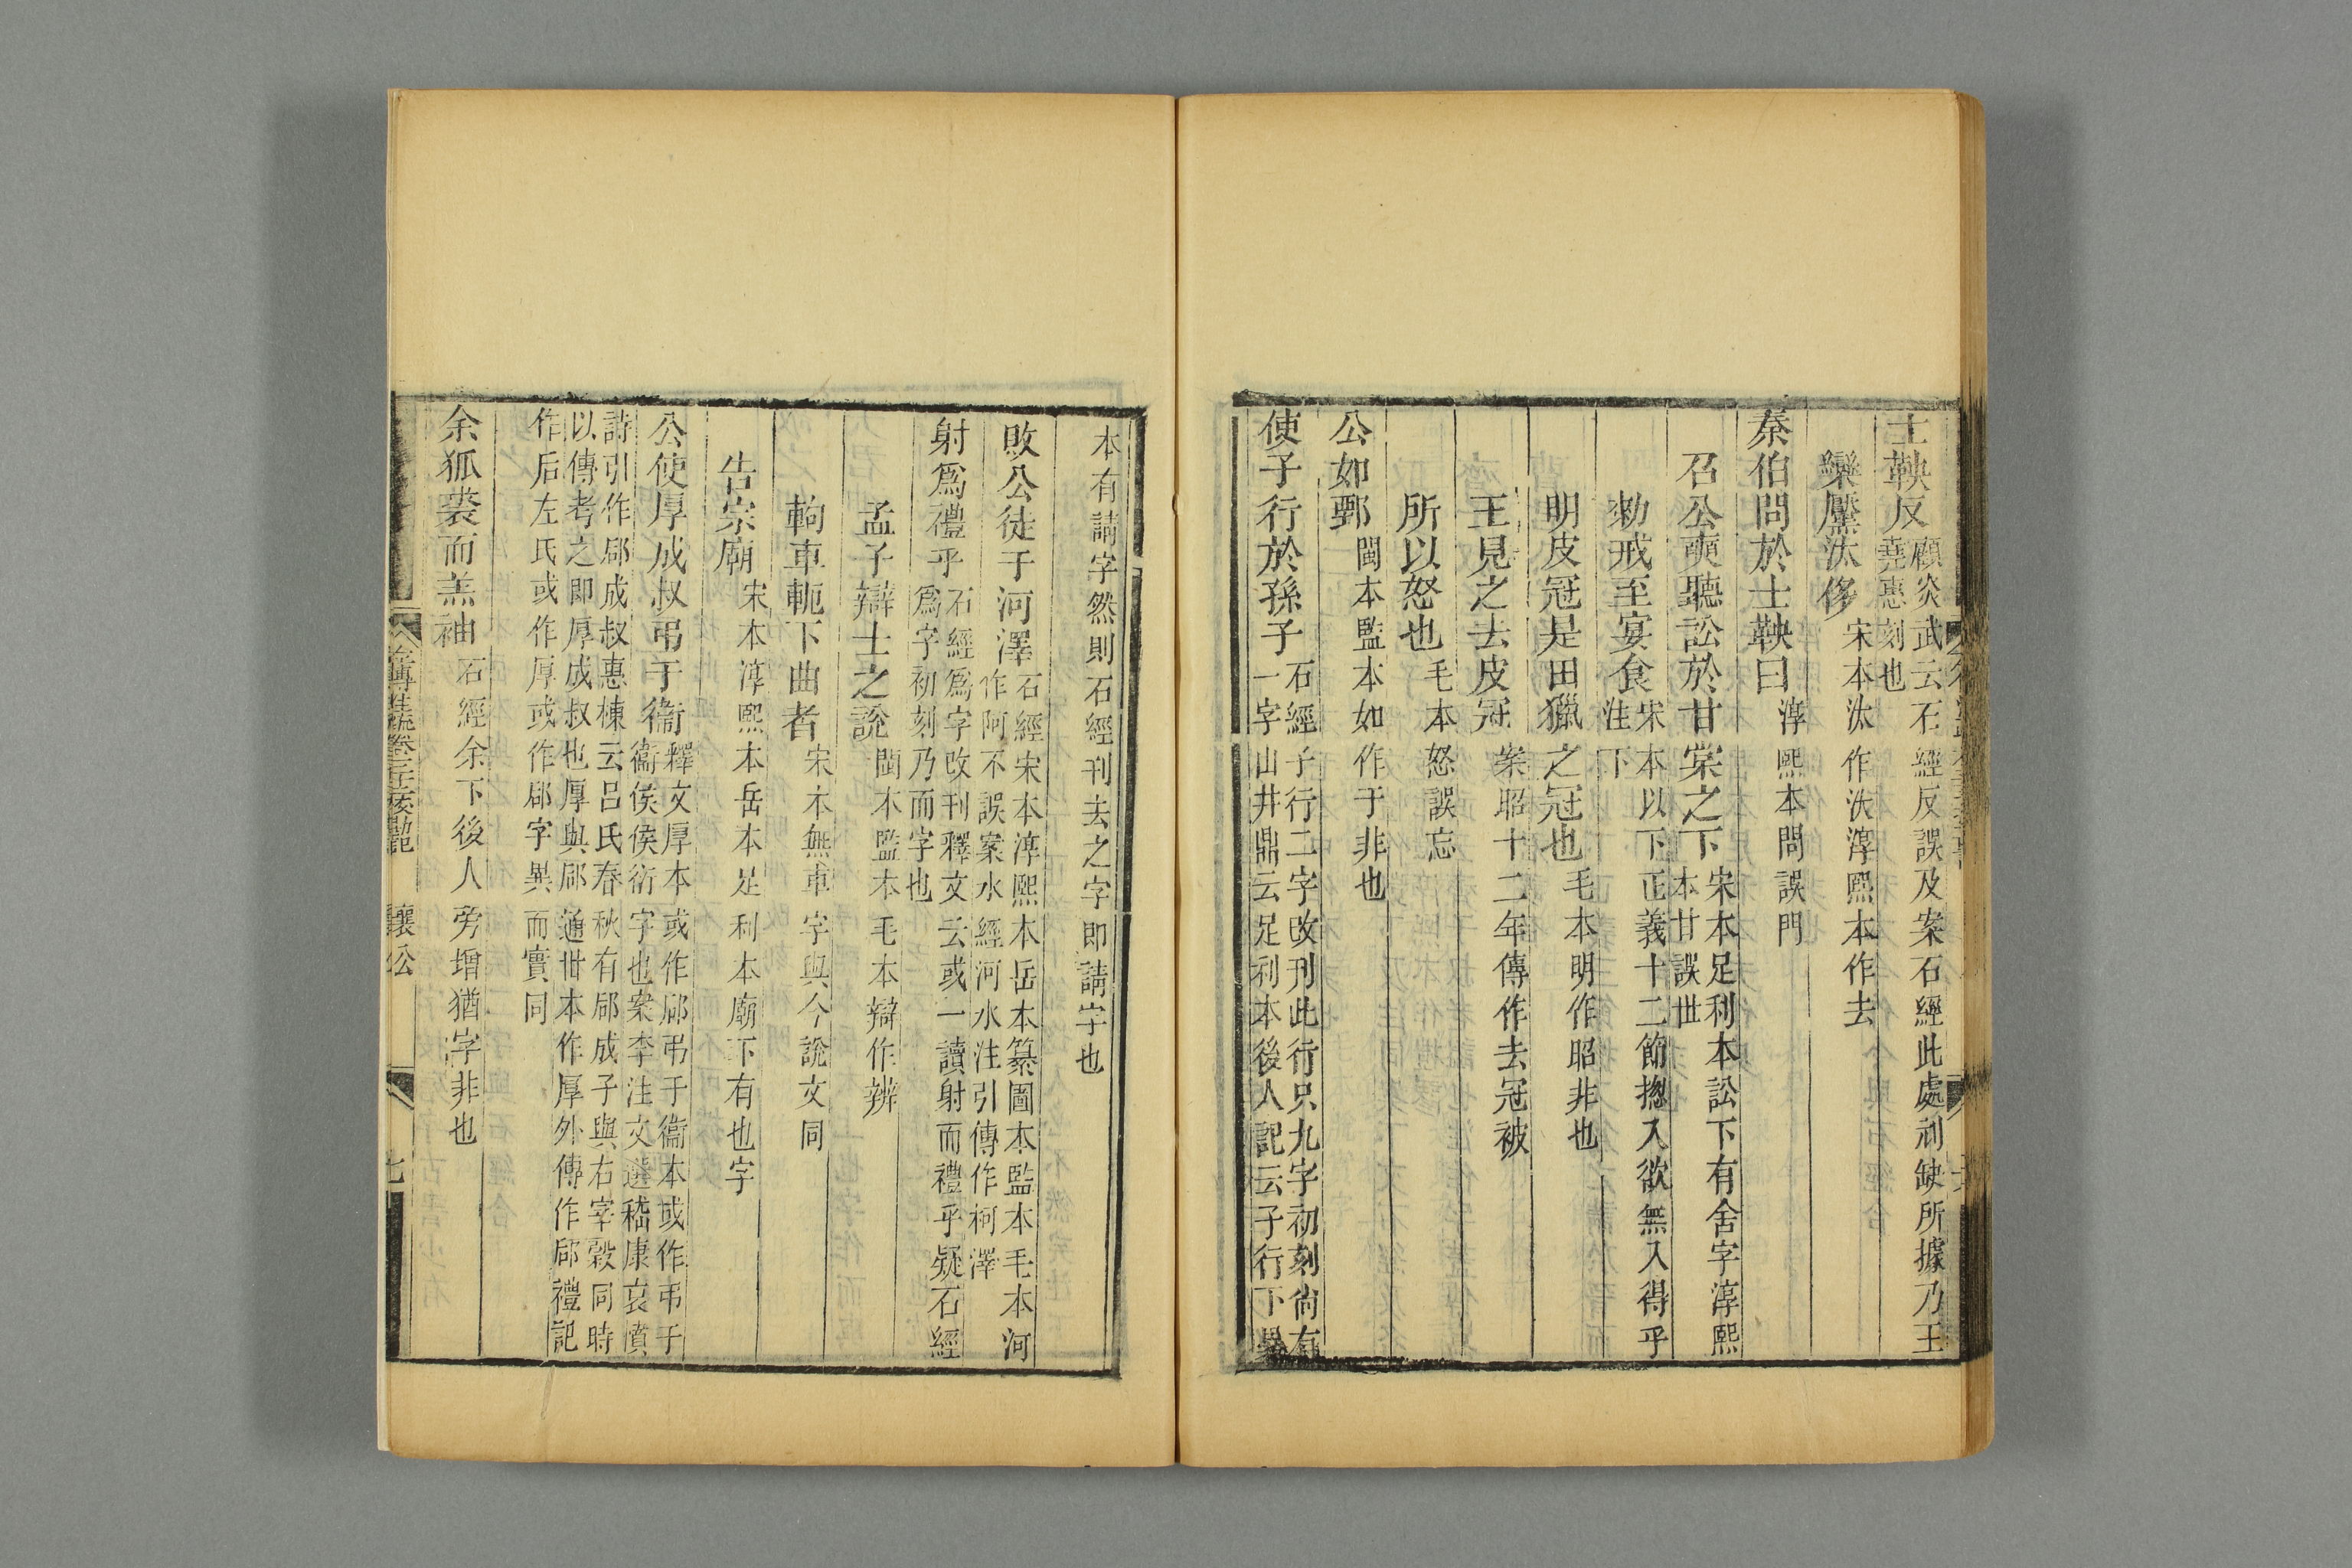 士鞅反顧炎武云石經反誤及案石經此處刓缺所據乃王
堯惠刻也
欒黶汰侈宋本汰作汏淳熙本作去
秦伯問於士鞅曰淳熙本問誤門
召公奭聽訟於甘棠之下宋本足利本訟下有舍字淳熙
本甘誤世
勑戒至宴食宋本以下正義十二節揔入欲無入得乎
注下
明皮冠是田獵之冠也毛本明作昭非也
王見之去皮冠案昭十二年傳作去冠被
所以怒也毛本怒誤忘
公如鄄閩本監本如作于非也
使子行於孫子石經子行二字改刊此行只九字初刻尙有
一字山井鼎云足利本後人記云子行下異
本有請字然則石經刊去之字即請字也
敗公徒于河澤石經宋本淳熙本岳本纂圖本監本毛本河
作阿不誤案水經河水注引傳作柯澤
射爲禮乎石經爲字改刊釋文云或一讀射而禮乎疑石經
爲字初刻乃而字也
孟子辯士之說閩本監本毛本辯作辨
軥車軛下曲者宋本無車字與今說文同
告宗廟宋本淳熙本岳本足利本廟下有也字
公使厚成叔弔于衞釋文厚本或作郈弔于衞本或作弔于
衞侯侯衍字也案李注文選嵇康哀憤
詩引作郈成叔惠棟云呂氏春秋有郈成子與右宰穀同時
以傳考之即厚成叔也厚與郈通世本作厚外傳作郈禮記
作后左氏或作厚或作郈字異而實同
余狐裘而羔袖石經余下後人旁增猶字非也
襄公
七